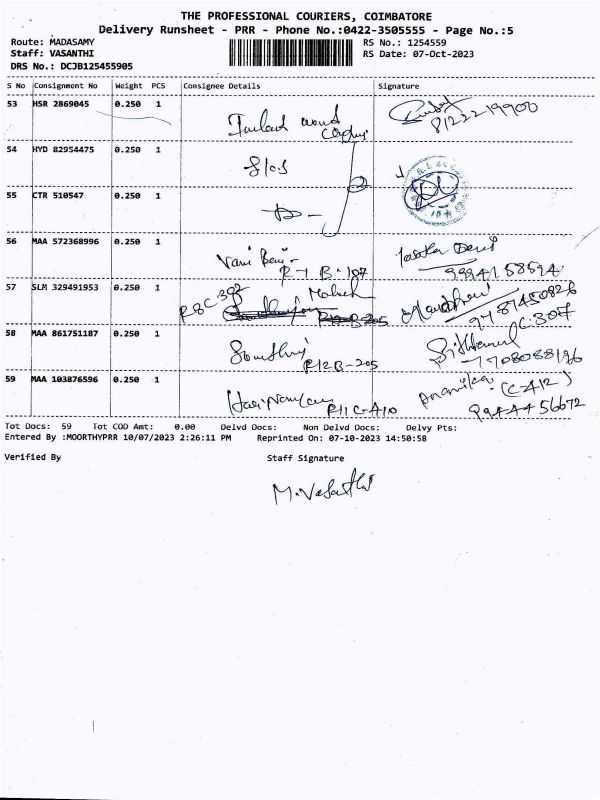 THE PROFESSIONAL COURIERS, COIMBATORE
Delivery Runsheet - PRR - Phone No.:0422-3505555 - Page No.:5
Route: MADASAMY RS No.: 1254559
Staff: VASANTHI RS Date: 07-Oct-2023
DRS No.: DCJB125455905
S No Consignment No Weight PCS Consignee Details Signature
53 HSR 2869045 0.250 1 8122219900
54 HYD 82954475 0.250 1
55 CTR 510547 0.250 1
56 MAA 572368996 0.250 1 Vani
R-1 B-187 9994158594
57 SLM 329491953 0.250 1 R8C-302 Mahesh
9787450826
C-307
58 MAA 861751187 0.250 1 R12B-205
7708088196
59 MAA 103876596 0.250 1 (C-412)
R11C-A10 9944456672
Tot Docs: 59 Tot COD Amt: 0.00 Delvd Docs: Non Delvd Docs: Delvy Pts:
Entered By :MOORTHYPRR 10/07/2023 2:26:11 PM Reprinted On: 07-10-2023 14:50:58
Verified By Staff Signature
M.Vasanthi